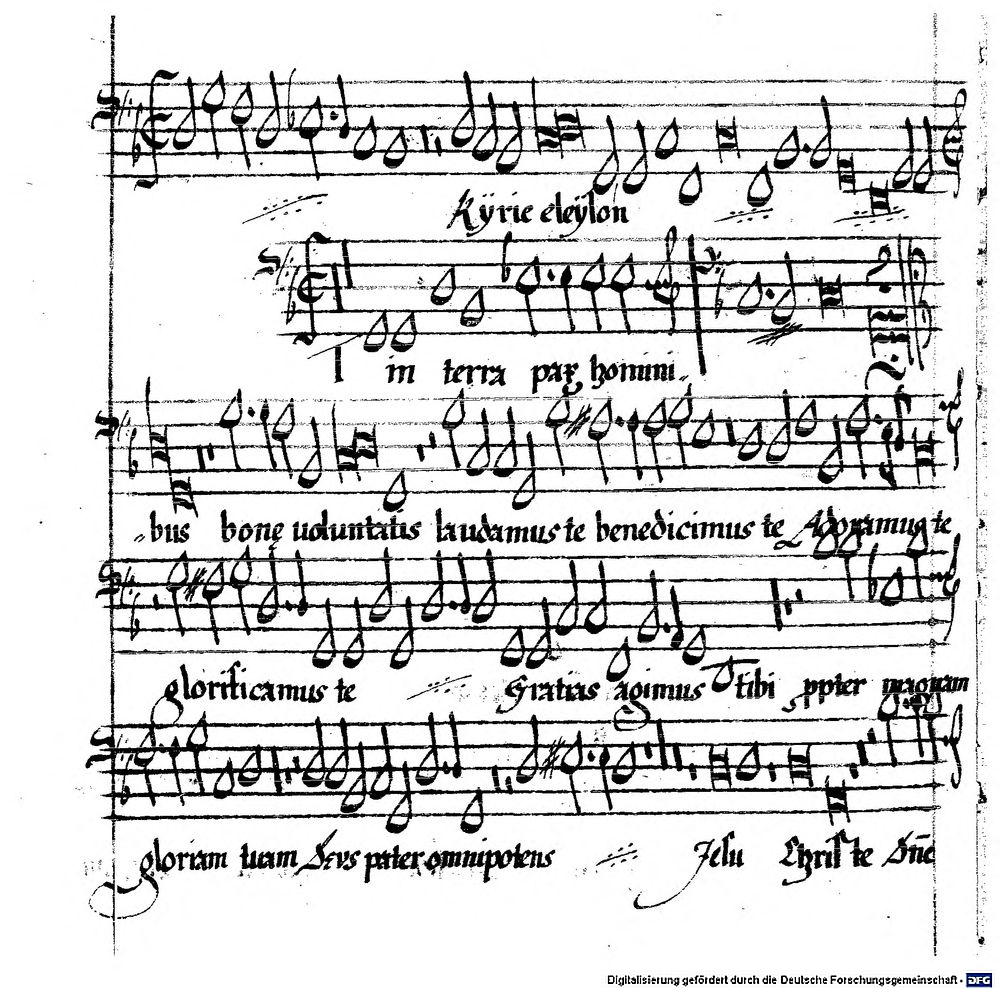 Kÿrie eleÿson
in terra pax homini-
-bus bonę uoluntatis laudamus te benedicimus te Adoramus te
glorificamus te Gratias agimus tibi ppter magnam
gloriam tuam Deus pater omnipotens Jesu Christe Dn̄e
Digitalisierung gefördert durch die Deutsche Forschungsgemeinschaft - DFG